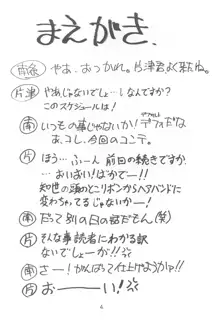 まえがき.
南 やあ、おつかれ。片津君、よく来たね。
片津 やあじゃないでしょ…!なんですか?
このスケジュールは!
南 いつもの事じゃないか!デフォルトだな
あ、コレ、今回のコンテ。
片 ほう…ふーん 前回の続きですか…
…おいおい!ばかで──!!
知世の頭のとこリボンからヘアバンドに
変わちゃてるじゃないか!
南 だって別の日の話だもん(笑)
片 そんな事読者にわかる訳
ないでしょーが!!
南 さー!がんばって仕上げようかァ!!
片 おーーーい!
4